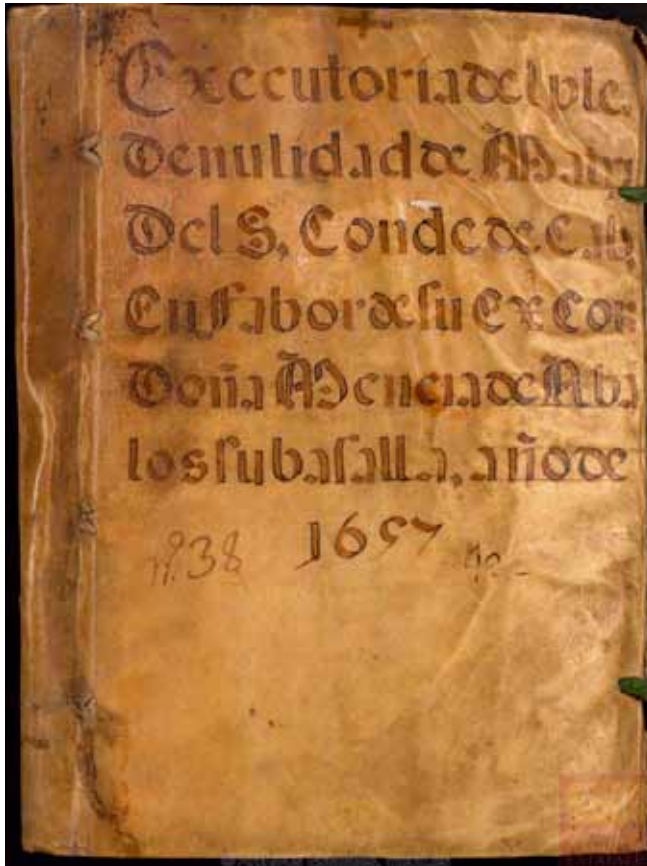 Executoria del ple.
De nulidad de Matri
Del S, Conde de Cab
En fabor de su Ex Con
Doña Mencia de Aba
los su basalla, año de
nº. 38 1657